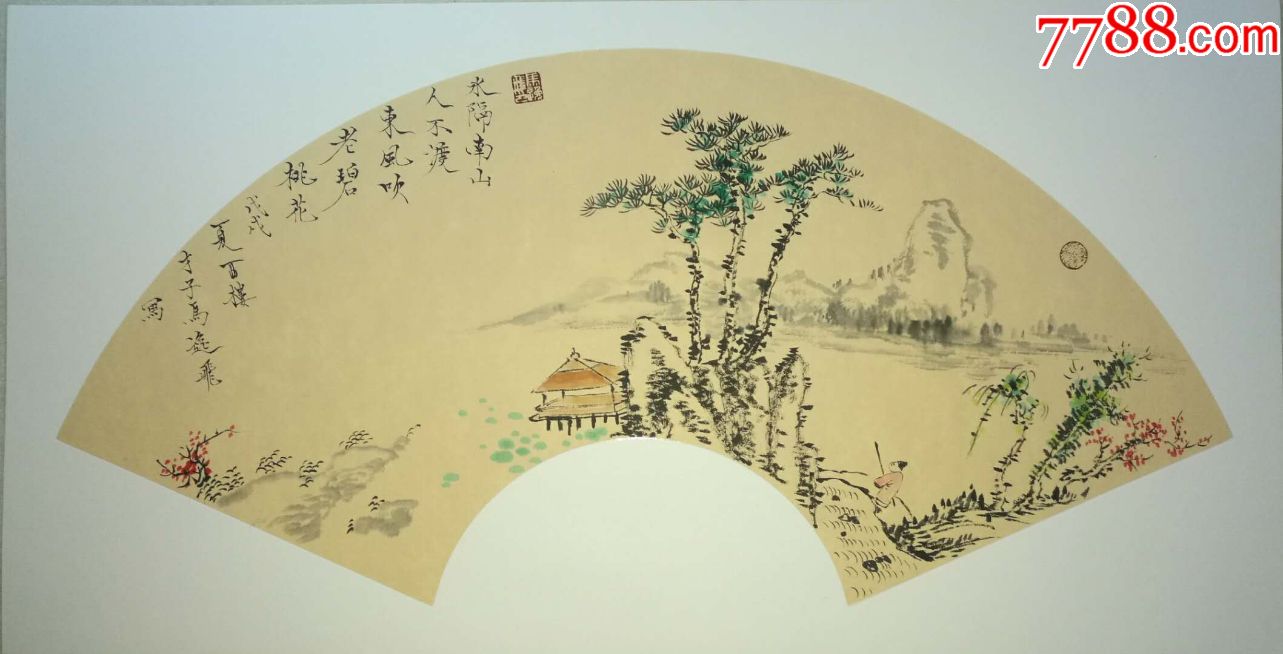 水隔南山
人不渡
東風吹
老碧
桃花
戊戌
夏百樓
才子馬遊飛
寫
7788.com